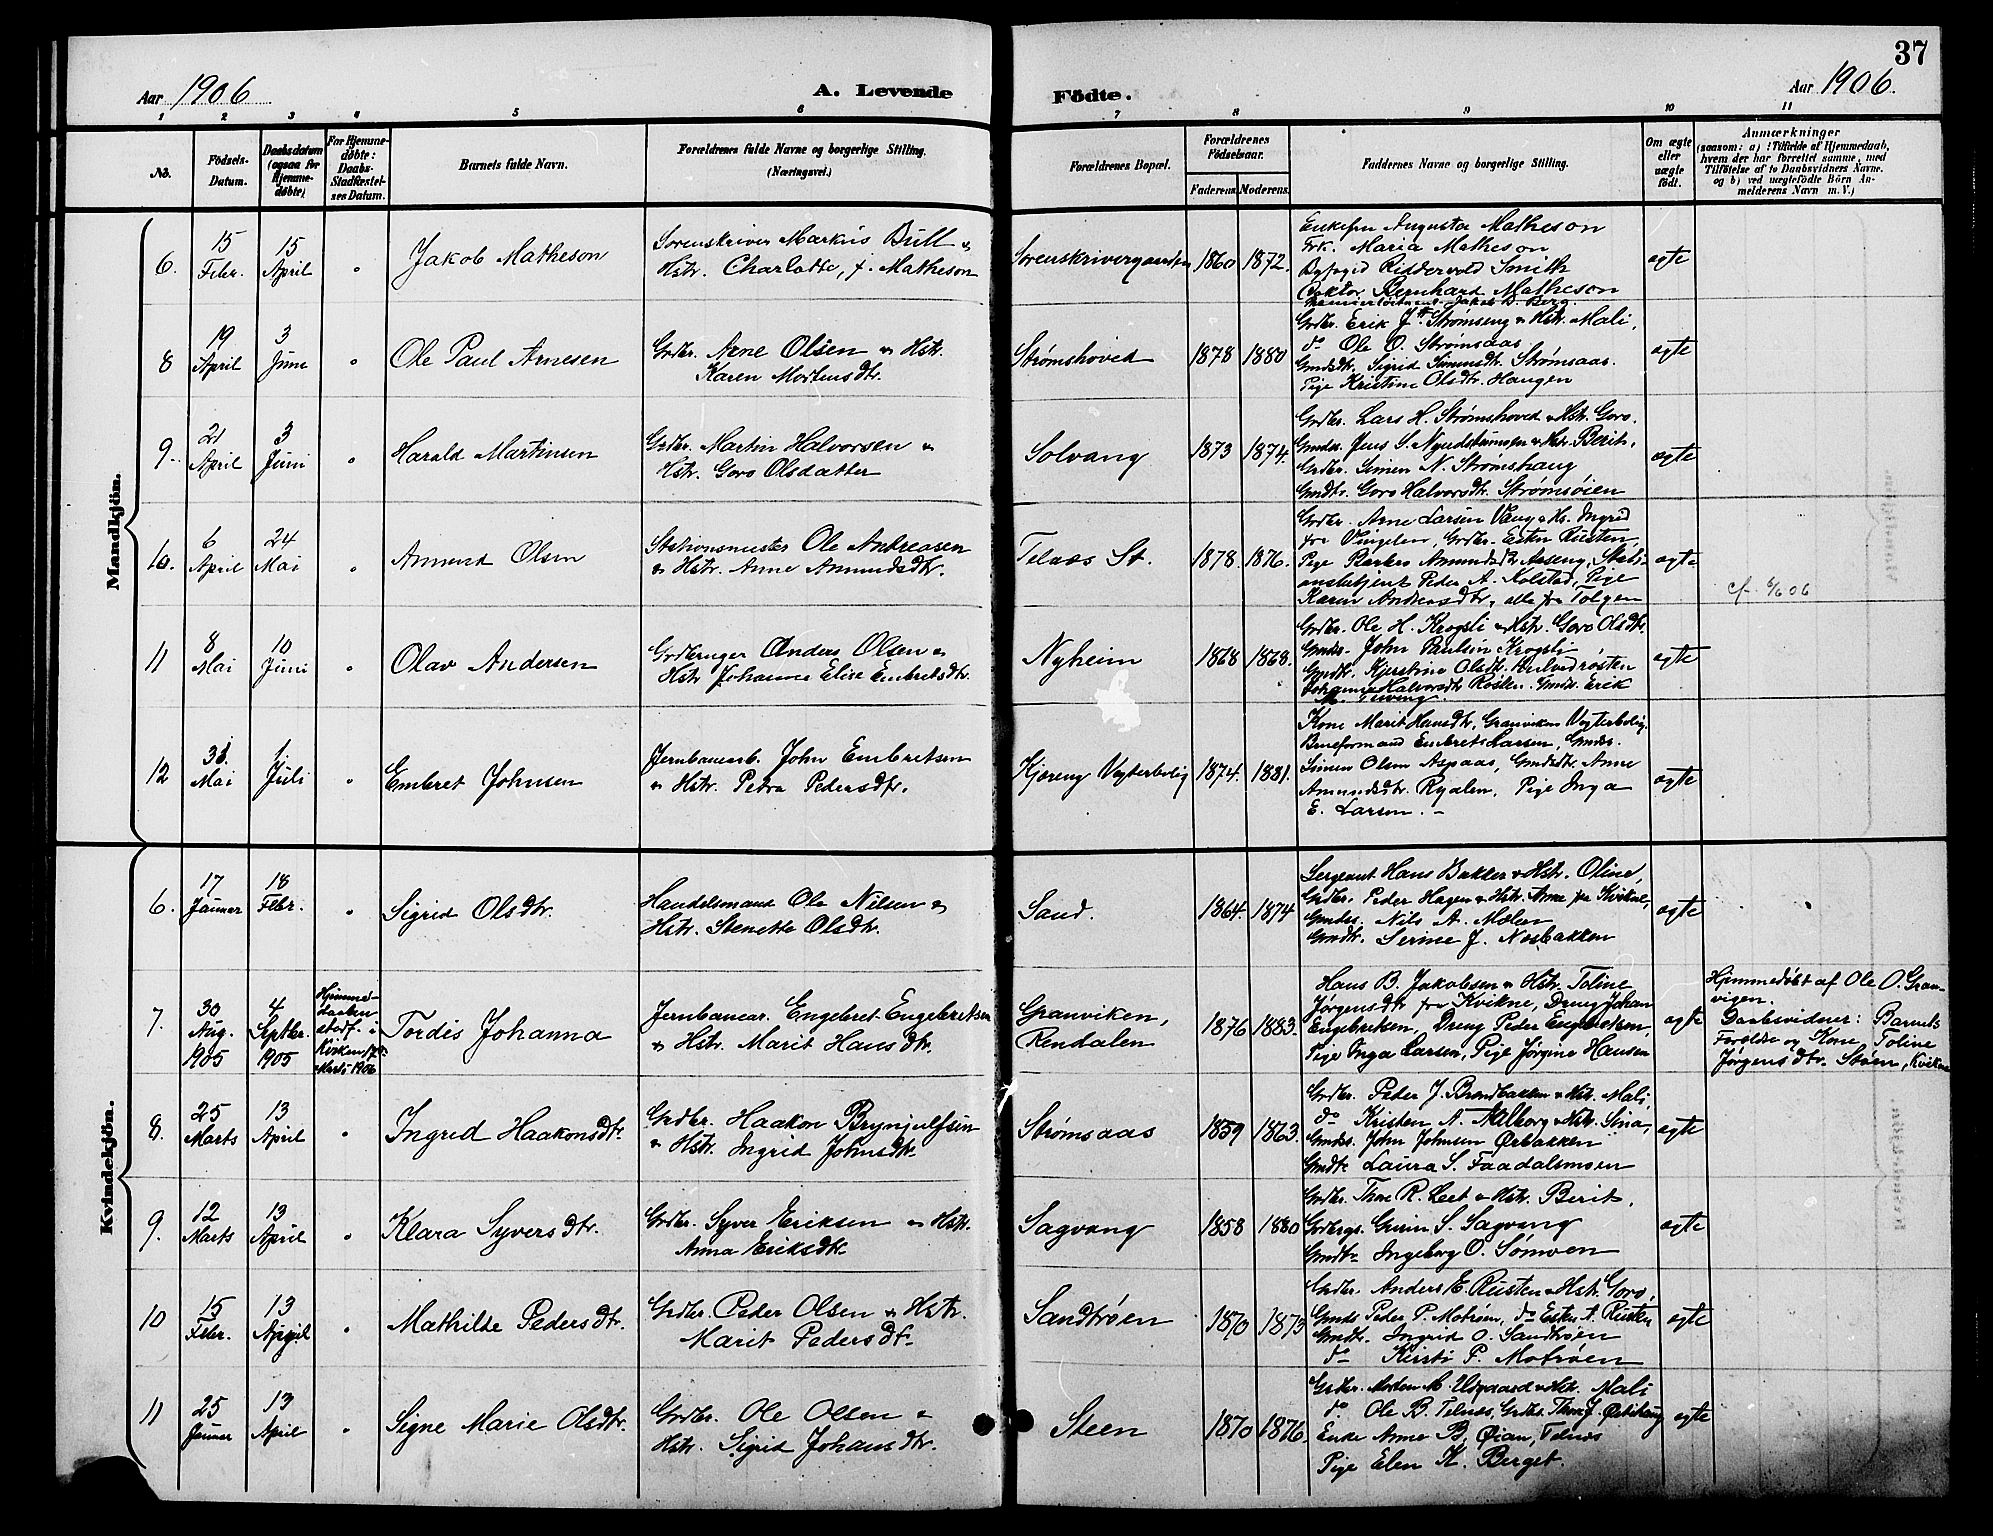 37
Aar 1906
A. Levende
Födte.
Aar 1906.
1 2 3 4 5 6 7 8 9 10 11
No.
Födsels-
Datum.
Daabsdatum
(ogsaa for
Hjemme-
døbte)
For Hjemme-
døbte:
Daabs-
Stadfæstel-
ses Datum.
Barnets fulde Navn.
Forældrenes fulde Navne og borgerlige Stilling.
(Næringsvei.)
Forældrenes Bopæl.
Forældrenes
Födselsaar.
Faderens.
Moderens.
Faddernes Navne og borgerlige Stilling.
Om ægte
eller
uægte
födt.
Anmærkninger
(saasom: a) i Tilfælde af Hjemmedaab,
hvem der har forrettet samme, med
Tilföielse af to Daabsvidners Navne.
og b) ved uægtefödte Börn An-
melderens Navn m. V.)
Mandkjön.
6.
15
Febr.
15
April
"
Jakob Matheson
Sorenskriver Markus Bull &
Hstr. Charlotte, f. Matheson
Sorenskrivergaarden
1860
1872.
Enkefru Augusta Matheson
Frk. Maria Matheson
Byfogid Riddervold Smith
Doktor Bernhard Matheson
Premierløitnant Jakob D. Berg.
ægte
8
19
April
3
Juni
"
Ole Paul Arnesen
Grdbr. Arne Olsen & Hstr.
Karen Mortensdtr.
Strømshoved
1878
1880
Grdbr. Erik J. Strømseng & Hstr. Mali,
do Ole O. Strømsaas
Gmdsdtr. Sigrid Simensdtr. Strømsaas.
Pige Kristine Olsdtr. Haugen
ægte
9.
21
April
3
Juni
"
Harald Martinsen
Grdbr. Martin Halvorsen &
Hstr. Goro Olsdatter
Solvang
1873
1874.
Grdbr. Lars H. Strømshoved & Hstr. Goro.
Gmds. Jens S. Nyrudstumoen & Hstr. Berit,
Grdbr. Simen N. Strømshaug
Gmdtr. Goro Halvorsdtr. Strømsøien
ægte
10.
6
April
24
Mai
"
Amund Olsen
Stationsmester Ole Andreasen
& Hstr. Anne Amundsdtr.
Telnæs St.
1878.
1876.
Grdbr. Arne Larsen Vang & Hs. Ingrid
fra Vingelen, Grdbr. Esten Rusten,
Pige Barbro Amundsdtr Aaseng, Stati-
onsbetjent Peder A. Kolstad, Pige
Karen Andreasdtr, alle fra Tolgen
ægte
cf. 6/6 06
11
8
Mai
10
Juni
"
Olav Andersen
Grdbruger Anders Olsen &
Hstr Johanne Elise Embretsdtr.
Nyheim
1868
1868.
Grdbr. Ole H. Krogsli & Hstr. Goro Olsdtr.
Gmds. John Paulsen Krogsli
Gmdtr. Kjerstine Olsdtr. Hulvedrøsten
Johanne Halvorsdtr Røsten. Gmds. Erik
ægte
12
31.
Mai
1
Juli
"
Embret Johnsen
Jernbanearb. John Embretsen
& Hstr. Petra Pedersdtr.
Kjøreng Vogterbolig
1874.
1881.
Kone Marit Hansdtr, Granviken Vogterbolig.
Baneformand Embret Larsen, Gmds.
Simen Olsen Aspaas, Gmdsdtr. Anne
Amundsdtr. Ryalen, Pige Inga
E. Larsen. -
ægte
Kvindekjön.
6.
17
Januar
18
Febr.
"
Sigrid Olsdtr.
Handelsmand Ole Nilsen &
Hstr. Stenette Olsdtr.
Sand.
1864.
1874
Sergeant Hans Bakken & Hstr. Oline,
Grdbr. Peder Hagen & Hstr. Anne fra Kvikne,
Gmds. Nils A. Moen
Gmdtr. Serine J. Næsbakken
ægte
7.
30
Aug.
1905
4
Septbr.
1905
Tordis Johanna
Jernbanear. Engebret Engebretsen
& Hstr. Marit Hansdtr.
Granviken,
Rendalen
1876
1883.
Hans B. Jakobsen & Hstr. Toline
Jørgensdtr fra Kvikne, Dreng Johan
Engebretsen, Dreng Peder Engebretsen,
Pige Inga Larsen, Pige Jørgine Hansen
ægte
Hjemmedøbt af Ole O. Gran-
vigen.
Daabsvidner: Barnets
Forældre og Kone Toline
Jørgensdtr. Støen, Kvikne
8.
25
Marts
13
April
"
Ingrid Haakonsdtr.
Grdbr. Haakon Brynjulfsen
& Hstr. Ingrid Johnsdtr.
Strømsaas
1859
1863.
Grdbr. Peder J. Brandbakken & Hstr. Mali,
do Kristen A. Aalborg & Hstr. Sina,
Gmds. John Johnsen Ørbakken
Gmdtr. Laura S. Faadalsmoen
ægte
9.
12
Marts
13
April
"
Klara Syversdtr.
Grdbr. Syver Eriksen & Hstr.
Anna Eriksdtr.
Sagvang
1858
1880
Grdbr. Thore R. Leet & Hstr. Berit,
S. Sagvang
Gmdtr. Ingeborg O. Sømoen
ægte
10
15
Febr.
13
April
"
Mathilde Pedersdtr.
Grdbr. Peder Olsen & Hstr.
Marit Pedersdtr.
Sandtrøen
1870
1873
Grdbr. Anders E. Rusten & Hstr. Goro,
Gmds Peder P. Motrøen, do Esten A. Rusten
Gmdtr. Ingrid O. Sandtrøen
do Kirsti P. Motrøen
ægte
11
25
Januar
13
April
"
Signe Marie Olsdtr.
Grdbr. Ole Olsen &
Hstr. Sigrid Johansdtr.
Steen
1870
1876.
Grdbr. Morten M. Udgaard & Hstr. Mali
do Ole B. Telnæs, Grdbr. Thore J.
Enke Anne B. Øian, Telnæs
Pige Elen K. Berget.
ægte